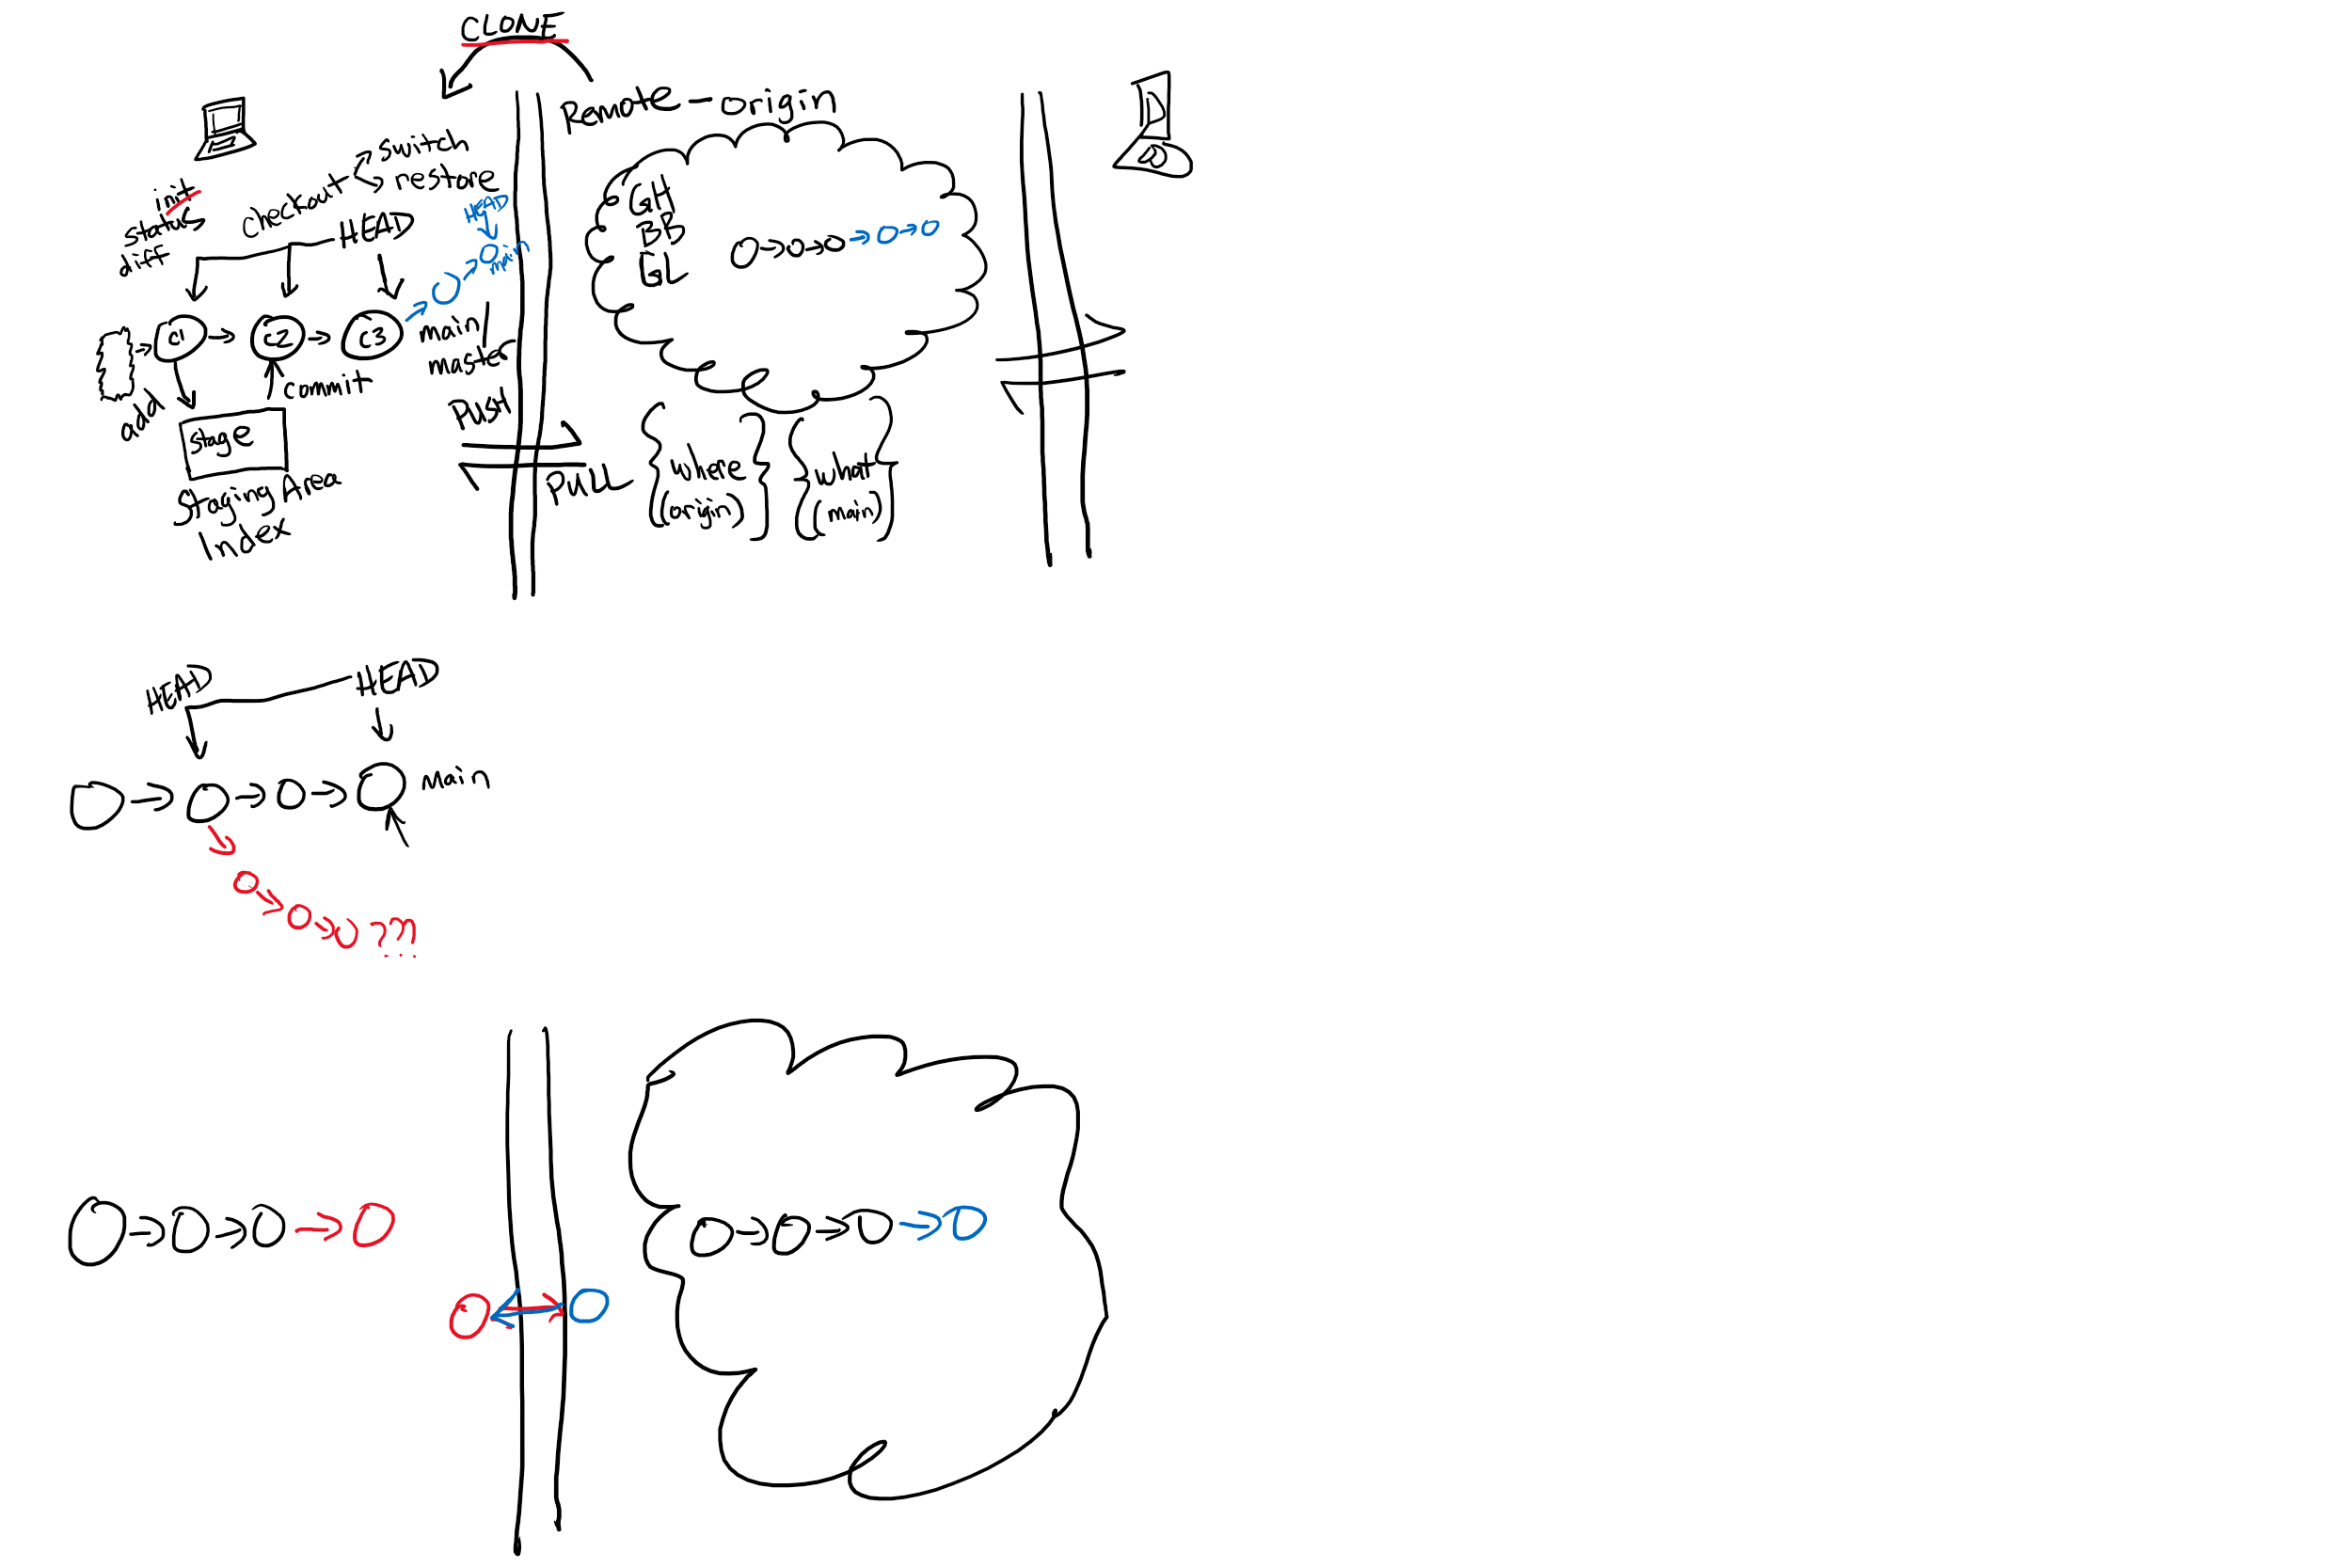 CLONE
Remote-origin
init
status
diff
checkout
switch
restore
HEAD
HEAD
main
C1
C2
C3
main/
master
add
commit
stage
Staging Area
Index
Push
PULL
GH
BB
GL
{ where } { what }
(origin) (main)
HEAD
HEAD
main
???